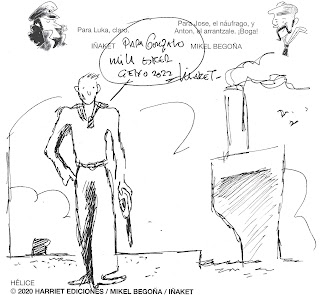 Para Luka, claro.
IÑAKET
Para Jose, el náufrago, y
Anton, el arrantzale. ¡Boga!
MIKEL BEGOÑA
PARA GONZALO
MILA ESKER
GETXO 2022
IÑAKET
HÉLICE
© 2020 HARRIET EDICIONES / MIKEL BEGOÑA / IÑAKET